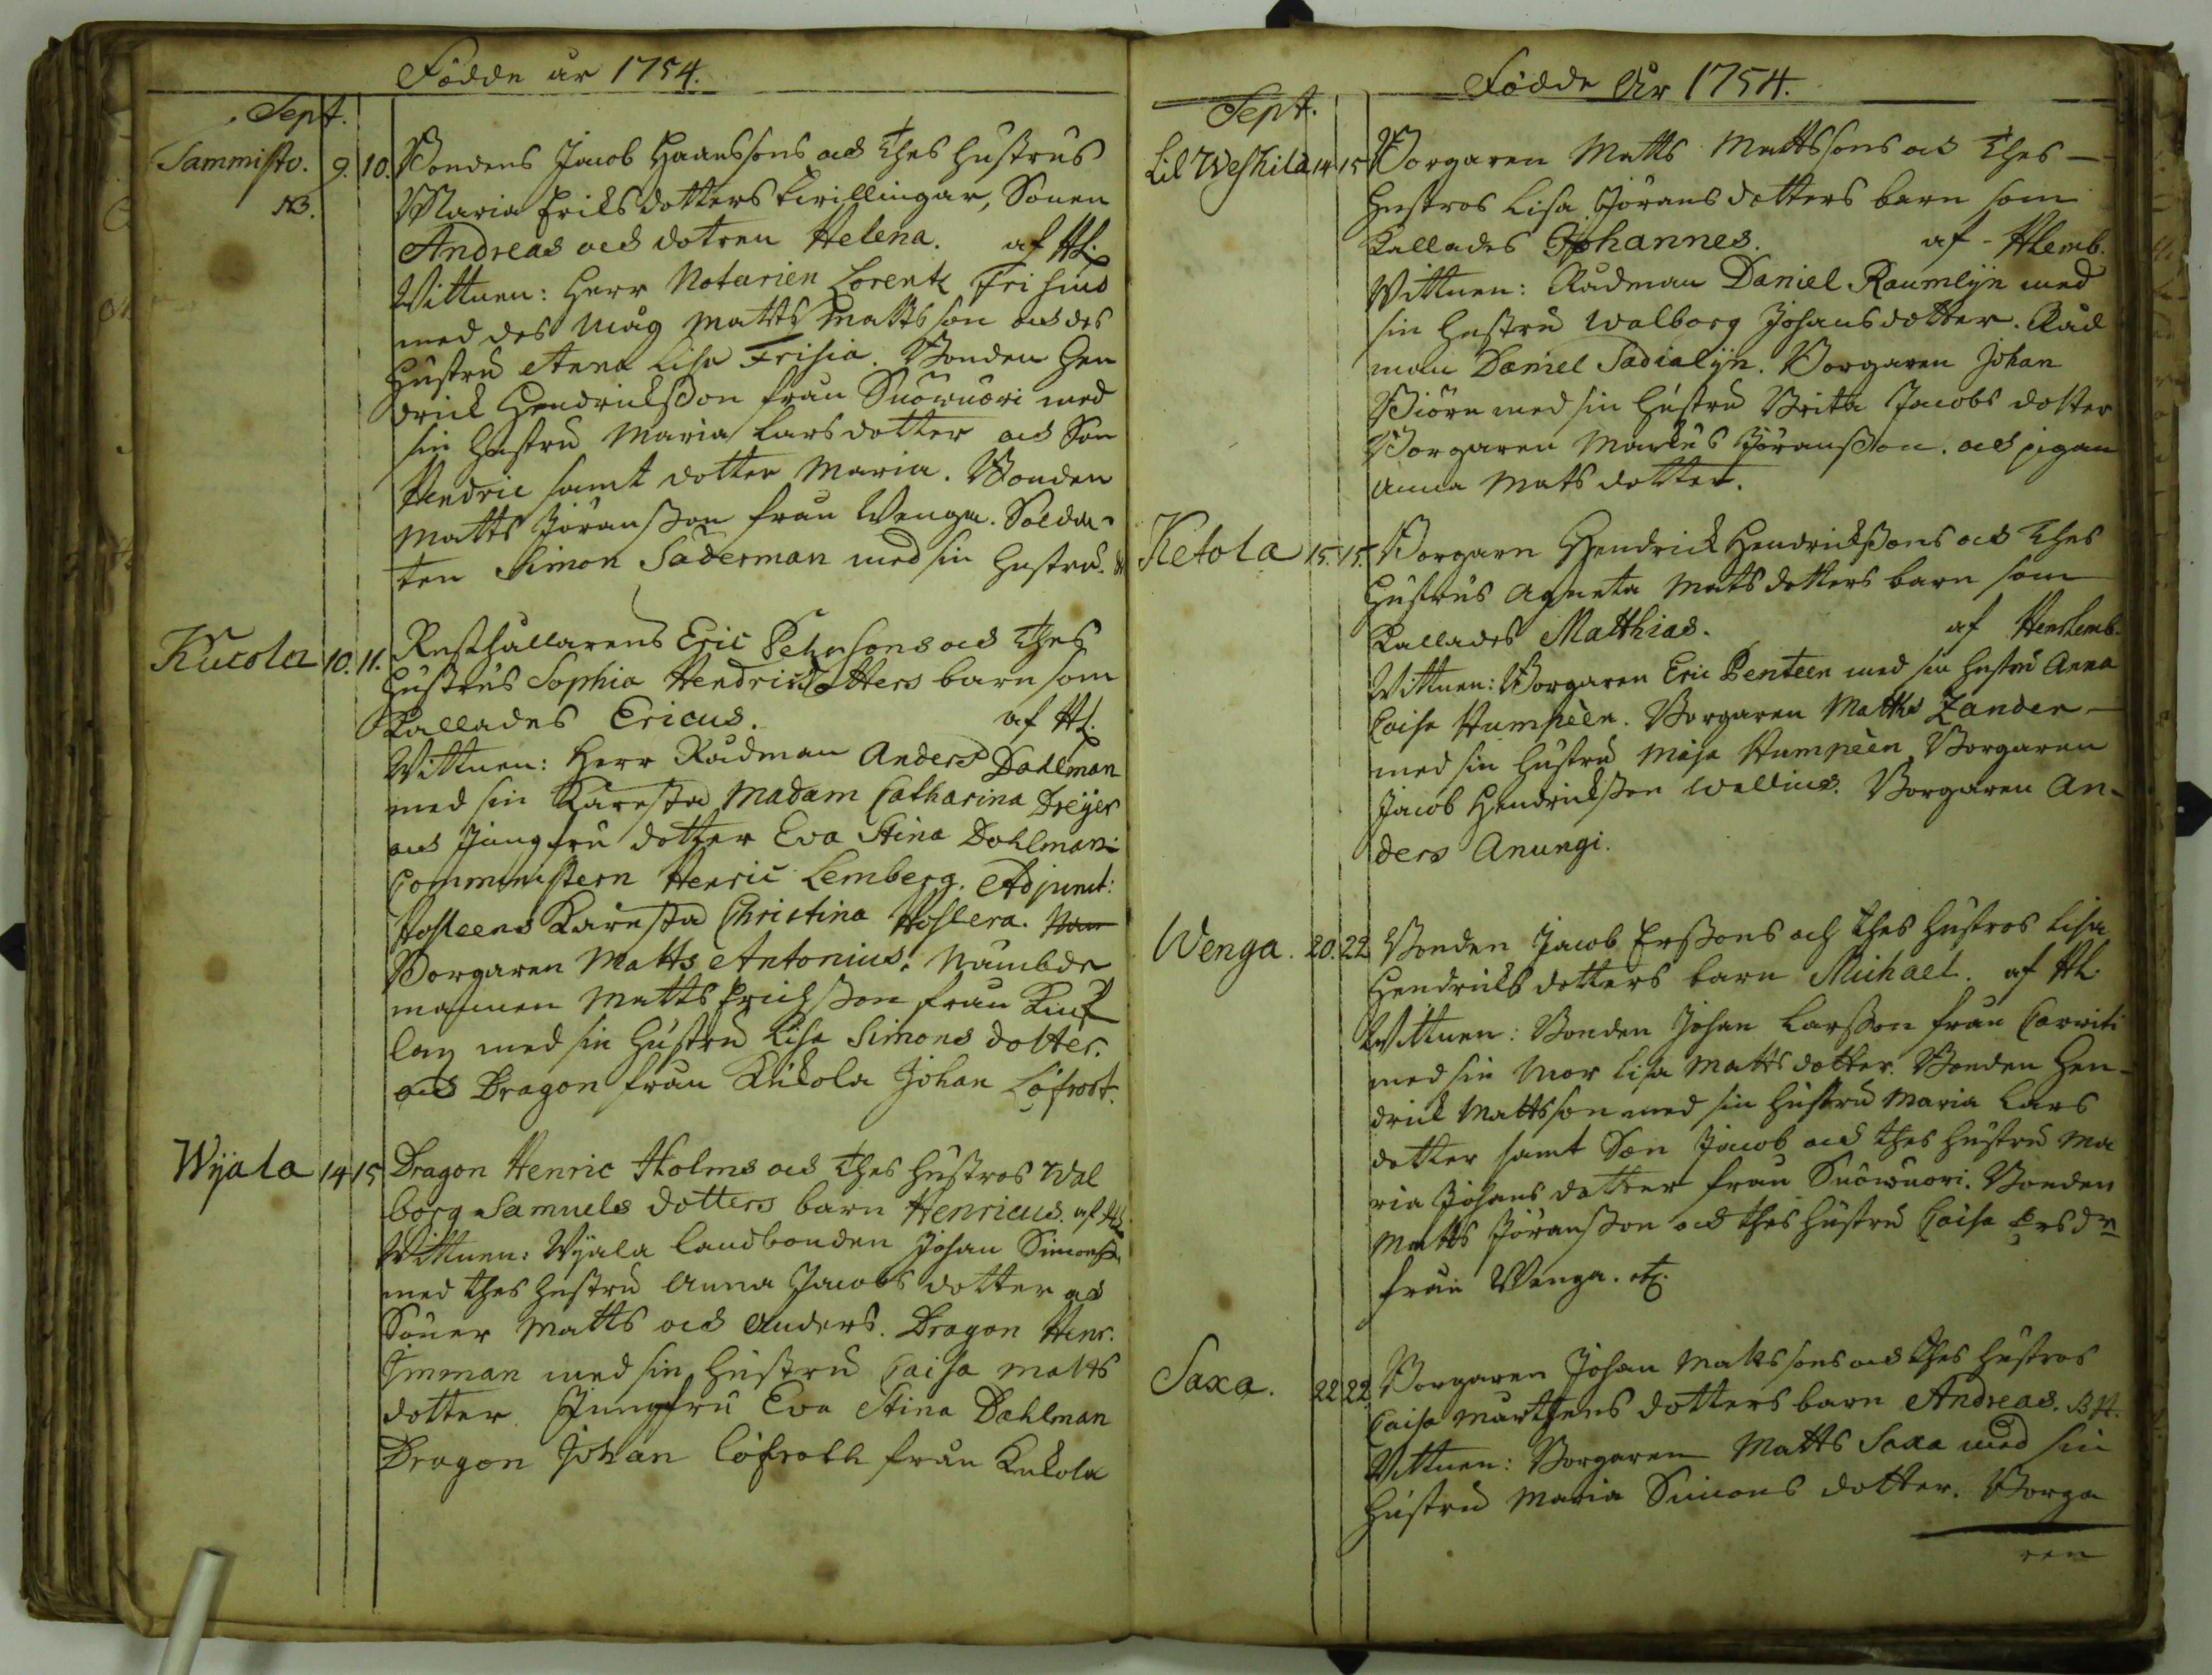 Födde år 1754.
Sept.
Sammisto. 9. 10. Bondens Jacob Hanssons och thes hustrus
NB. Maria Eriksdotters tvillingar, Sonen
Andreas och dotren Helena. af HL.
Vittnen: Herr Notarien Lorentz Frisius
med des måg Matts Mattsson och des
Hustru Anna Lisa Frisia. Bonden Hen
drick Hendricksson från Suowuori med
sin Hustru Maria Larsdotter och Son
Hendric samt dotter Maria. Bonden
Matts Jöransson från Wenga. Solda-
ten Simon Säderman med sin Hustru.
Kucola 10. 11. Rusthållarens Eric Pehrsons och thes
Hustrus Sophia Hendricsdotters barn som
Kallades Ericus. af HL.
Vittnen: Herr Rådman Anders Dahlman
med sin Käresta Madam Catharina Dreijer
och Jungfru dotter Eva Stina Dahlman:
Comministern Henric Lemberg. Adjunct:
Käresta Christina
Borgaren Matts Antonius. Nämbde
mannen Matts Erichsson från
lax med sin Hustru Lisa Simons dotter.
och Dragon från Kukola Johan Löfrost.
Wijala 14 15 Dragon Henric Holms och thes Hustros Wal
borg Samuels dotters barn Henricus. af HL
Vittnen: Wijala landbonden Johan Simonss.
med thes Hustru Anna Jacobs dotter och
Söner Matts och Anders. Dragon Henr.
Imman med sin Hustru Caisa Matts
dotter. Jungfru Eva Stina Dahlman
Dragon Johan Löfroth från Kukola
Födde År 1754.
Sept.
Lil Weshila 14 15 Borgaren Matts Mattssons och thes
Hustros Lisa Jörans dotters barn som
Kallades Johannes. af HLemb.
Vittnen: Rådman Daniel Raumlijn med
sin Hustru Walborg Johansdotter. Råd
man Daniel Sadialijn. Borgaren Johan
Biörn med sin Hustru Brita Jacobs dotter
Borgaren Markus Jöransson. och pigan
Anna Mats dotter.
Ketola 15. 15. Borgarn Hendrick Hendrickssons och thes
Hustrus Agneta Mats dotters barn som
Kallades Matthias. af HenrLemb.
Vittnen: Borgaren Eric Penteen med sin Hustru Anna
Caisa Humpèen. Borgaren Matths Zander
med sin Hustru Maja Humpèen Borgaren
Jacob Hendricksson Wallius. Borgaren An-
ders Anungi.
Wenga. 20. 22 Bonden Jacob Erssons och thes Hustros Lisa
Hendricks dotters barn Michael. af HL.
Vittnen: Bonden Johan Larsson från
med sin Mor Lisa Matts dotter. Bonden Hen-
drick Mattsson med sin Hustru Maria Lars
dotter samt Son Jacob och thes Hustru Ma
ria Johans dotter från Suowuori. Bonden
Matts Jöransson och thes Hustru Caisa Ersdr
från Wenga. etc.
Saxa. 22 22 Borgaren Johan Matssons och thes Hustros
Caisa Mårthens dotters barn Andreas. BH.
Vittnen: Borgaren Matts Saxa med sin
Hustru Maria Simons dotter. Borga
ren